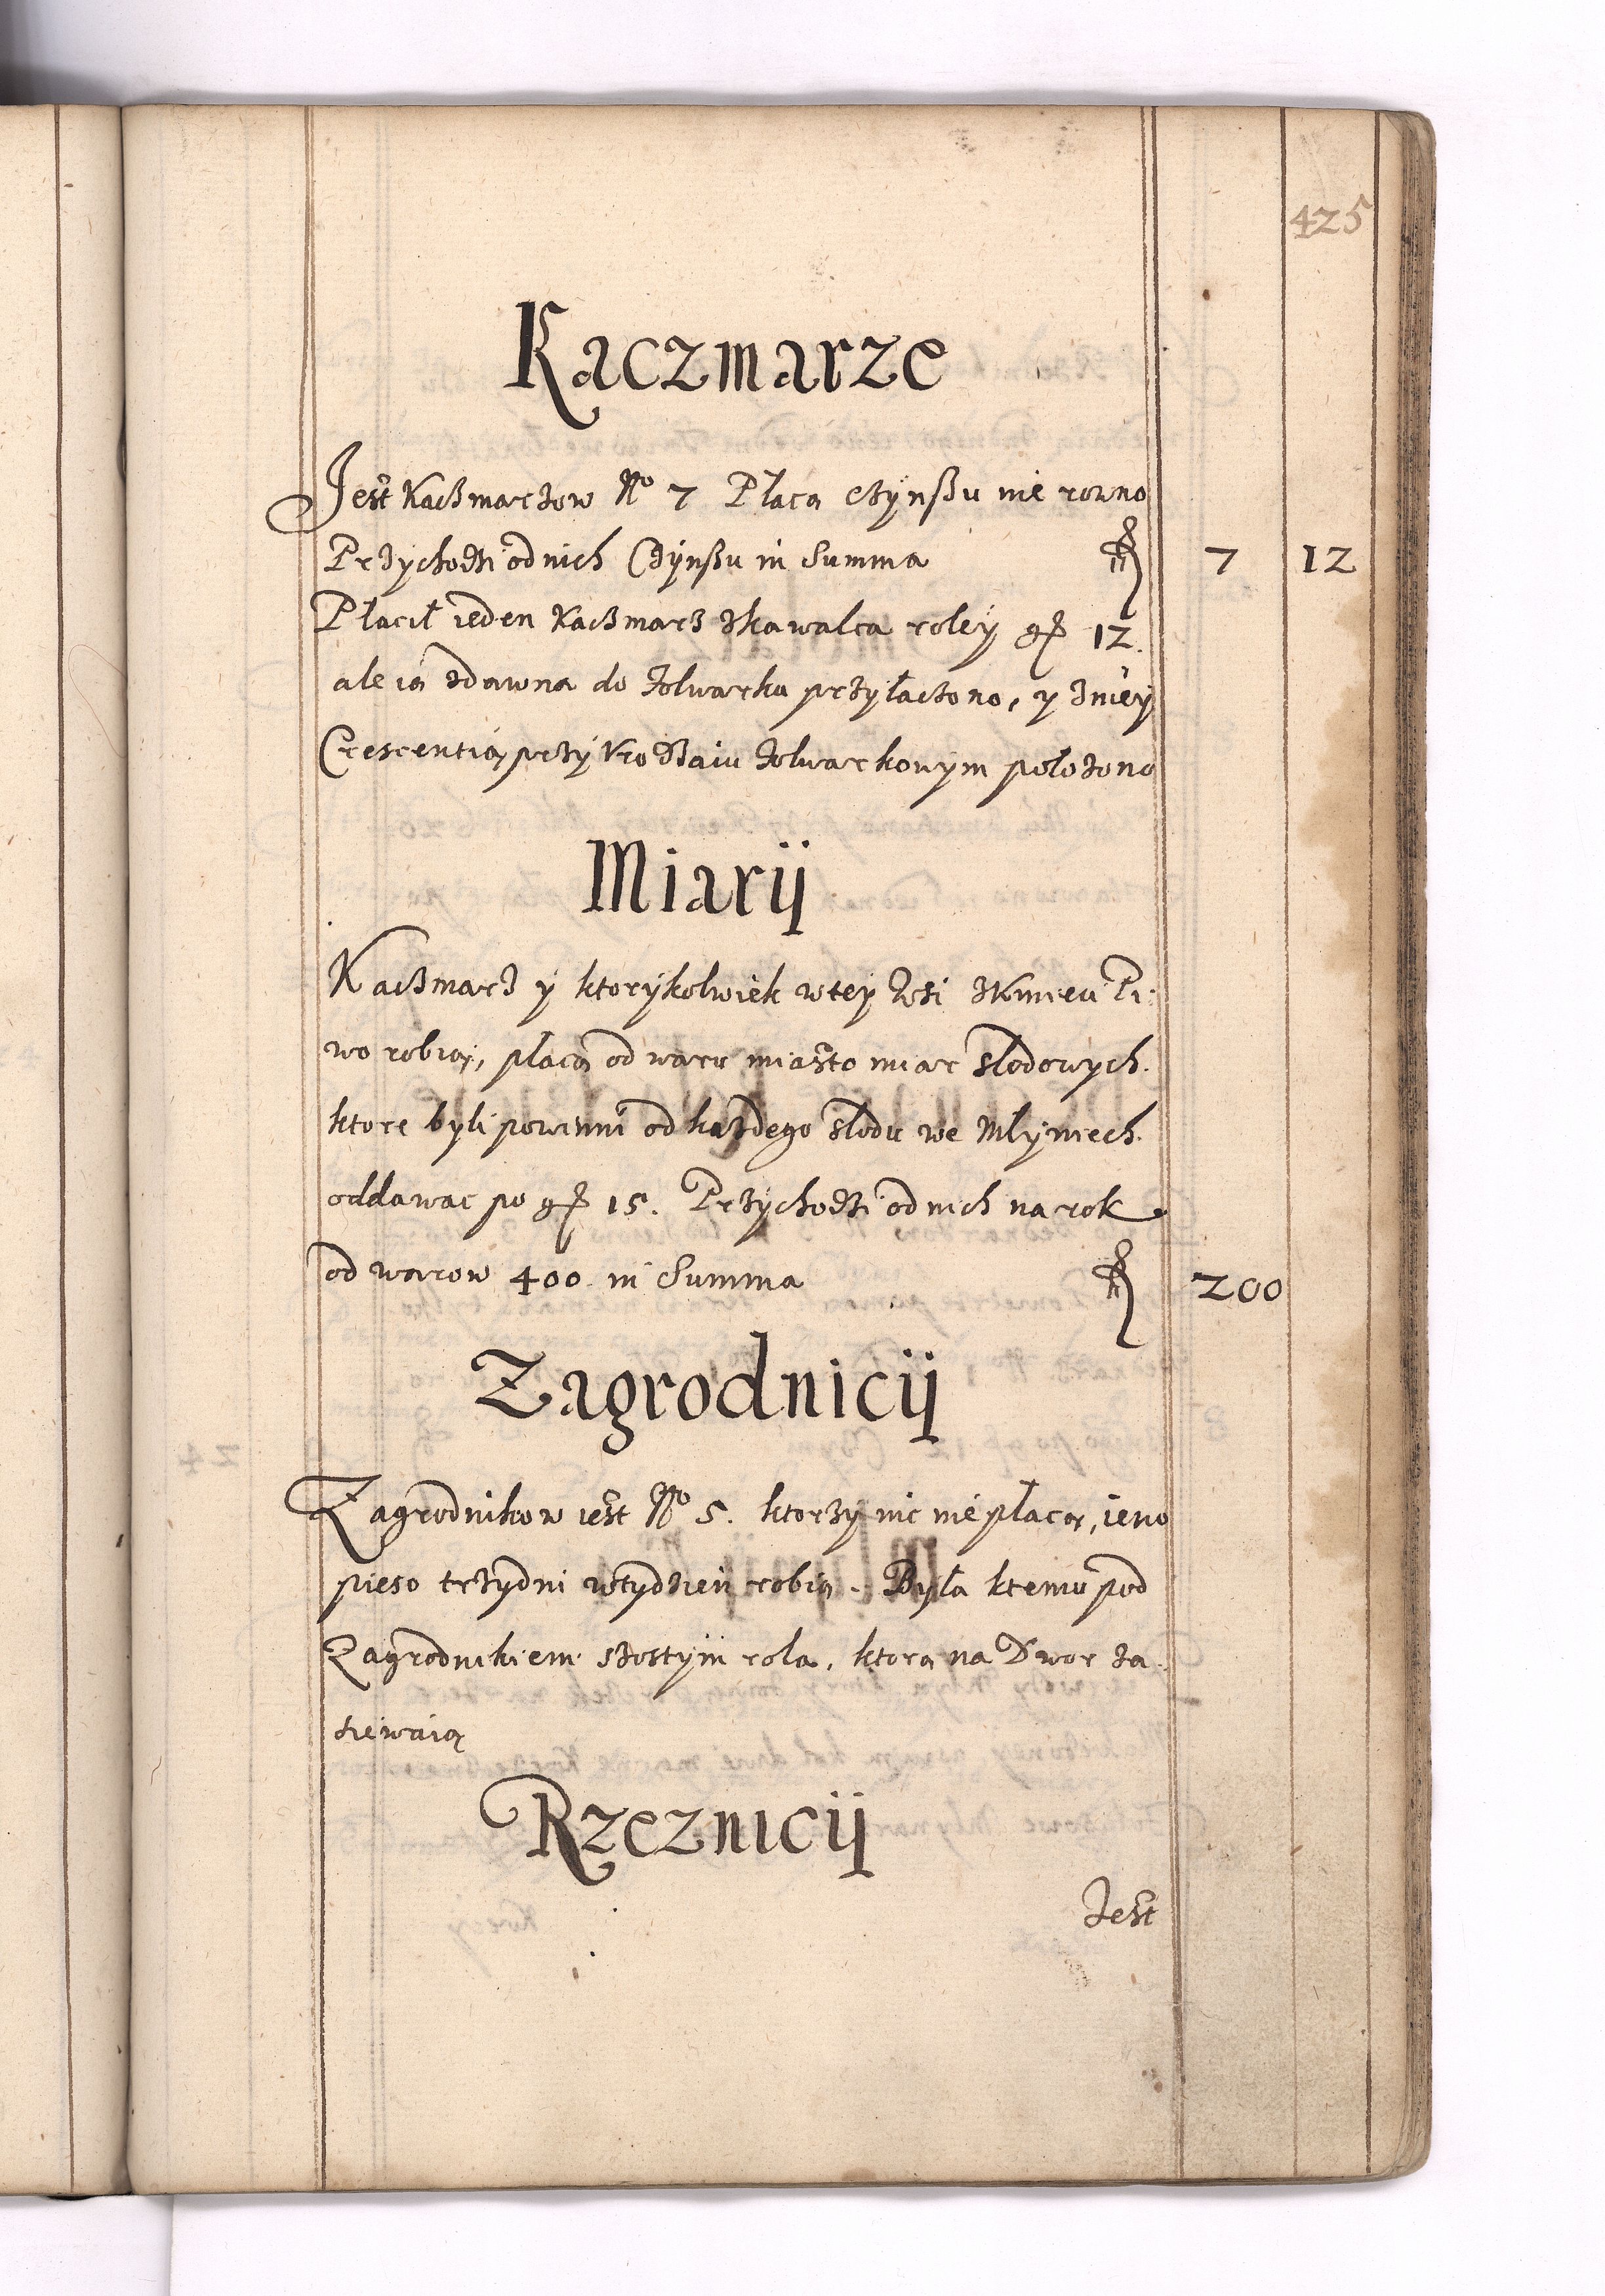 425
Kaczmarze
Jest Kaczmarzow No 7 Płacą Czynszu nie rowno
Przychodzi od nich Czynszu in Summa fl 7 12
Płacił ieden Kaczmarz zkawalca roley gr 12.
ale ią zdawna do folwarku przyłączono, y zniey
Crescentią przy Vrodzaiu folwarkowym położono
Miarÿ
Kaczmarz y ktorykolwiek wtey Wsi zKmieci Pi:
wo robią, płacą od waru miasto miar słodowych.
ktore byli powinni od każdego słodu we Młyniech.
oddawac po gr 15. Przychodzi od nich na rok
od warow 400 in Summa fl 200
Zagrodnicÿ
Zagrodnikow iest No 5. ktorzy nic nie płacą, ieno
pieso trzy dni w tydzien robią. Była ktemu pod
Zagrodnikiem szostym rola, ktorą na Dwor za
siewaią
Rzeznicÿ
Jest